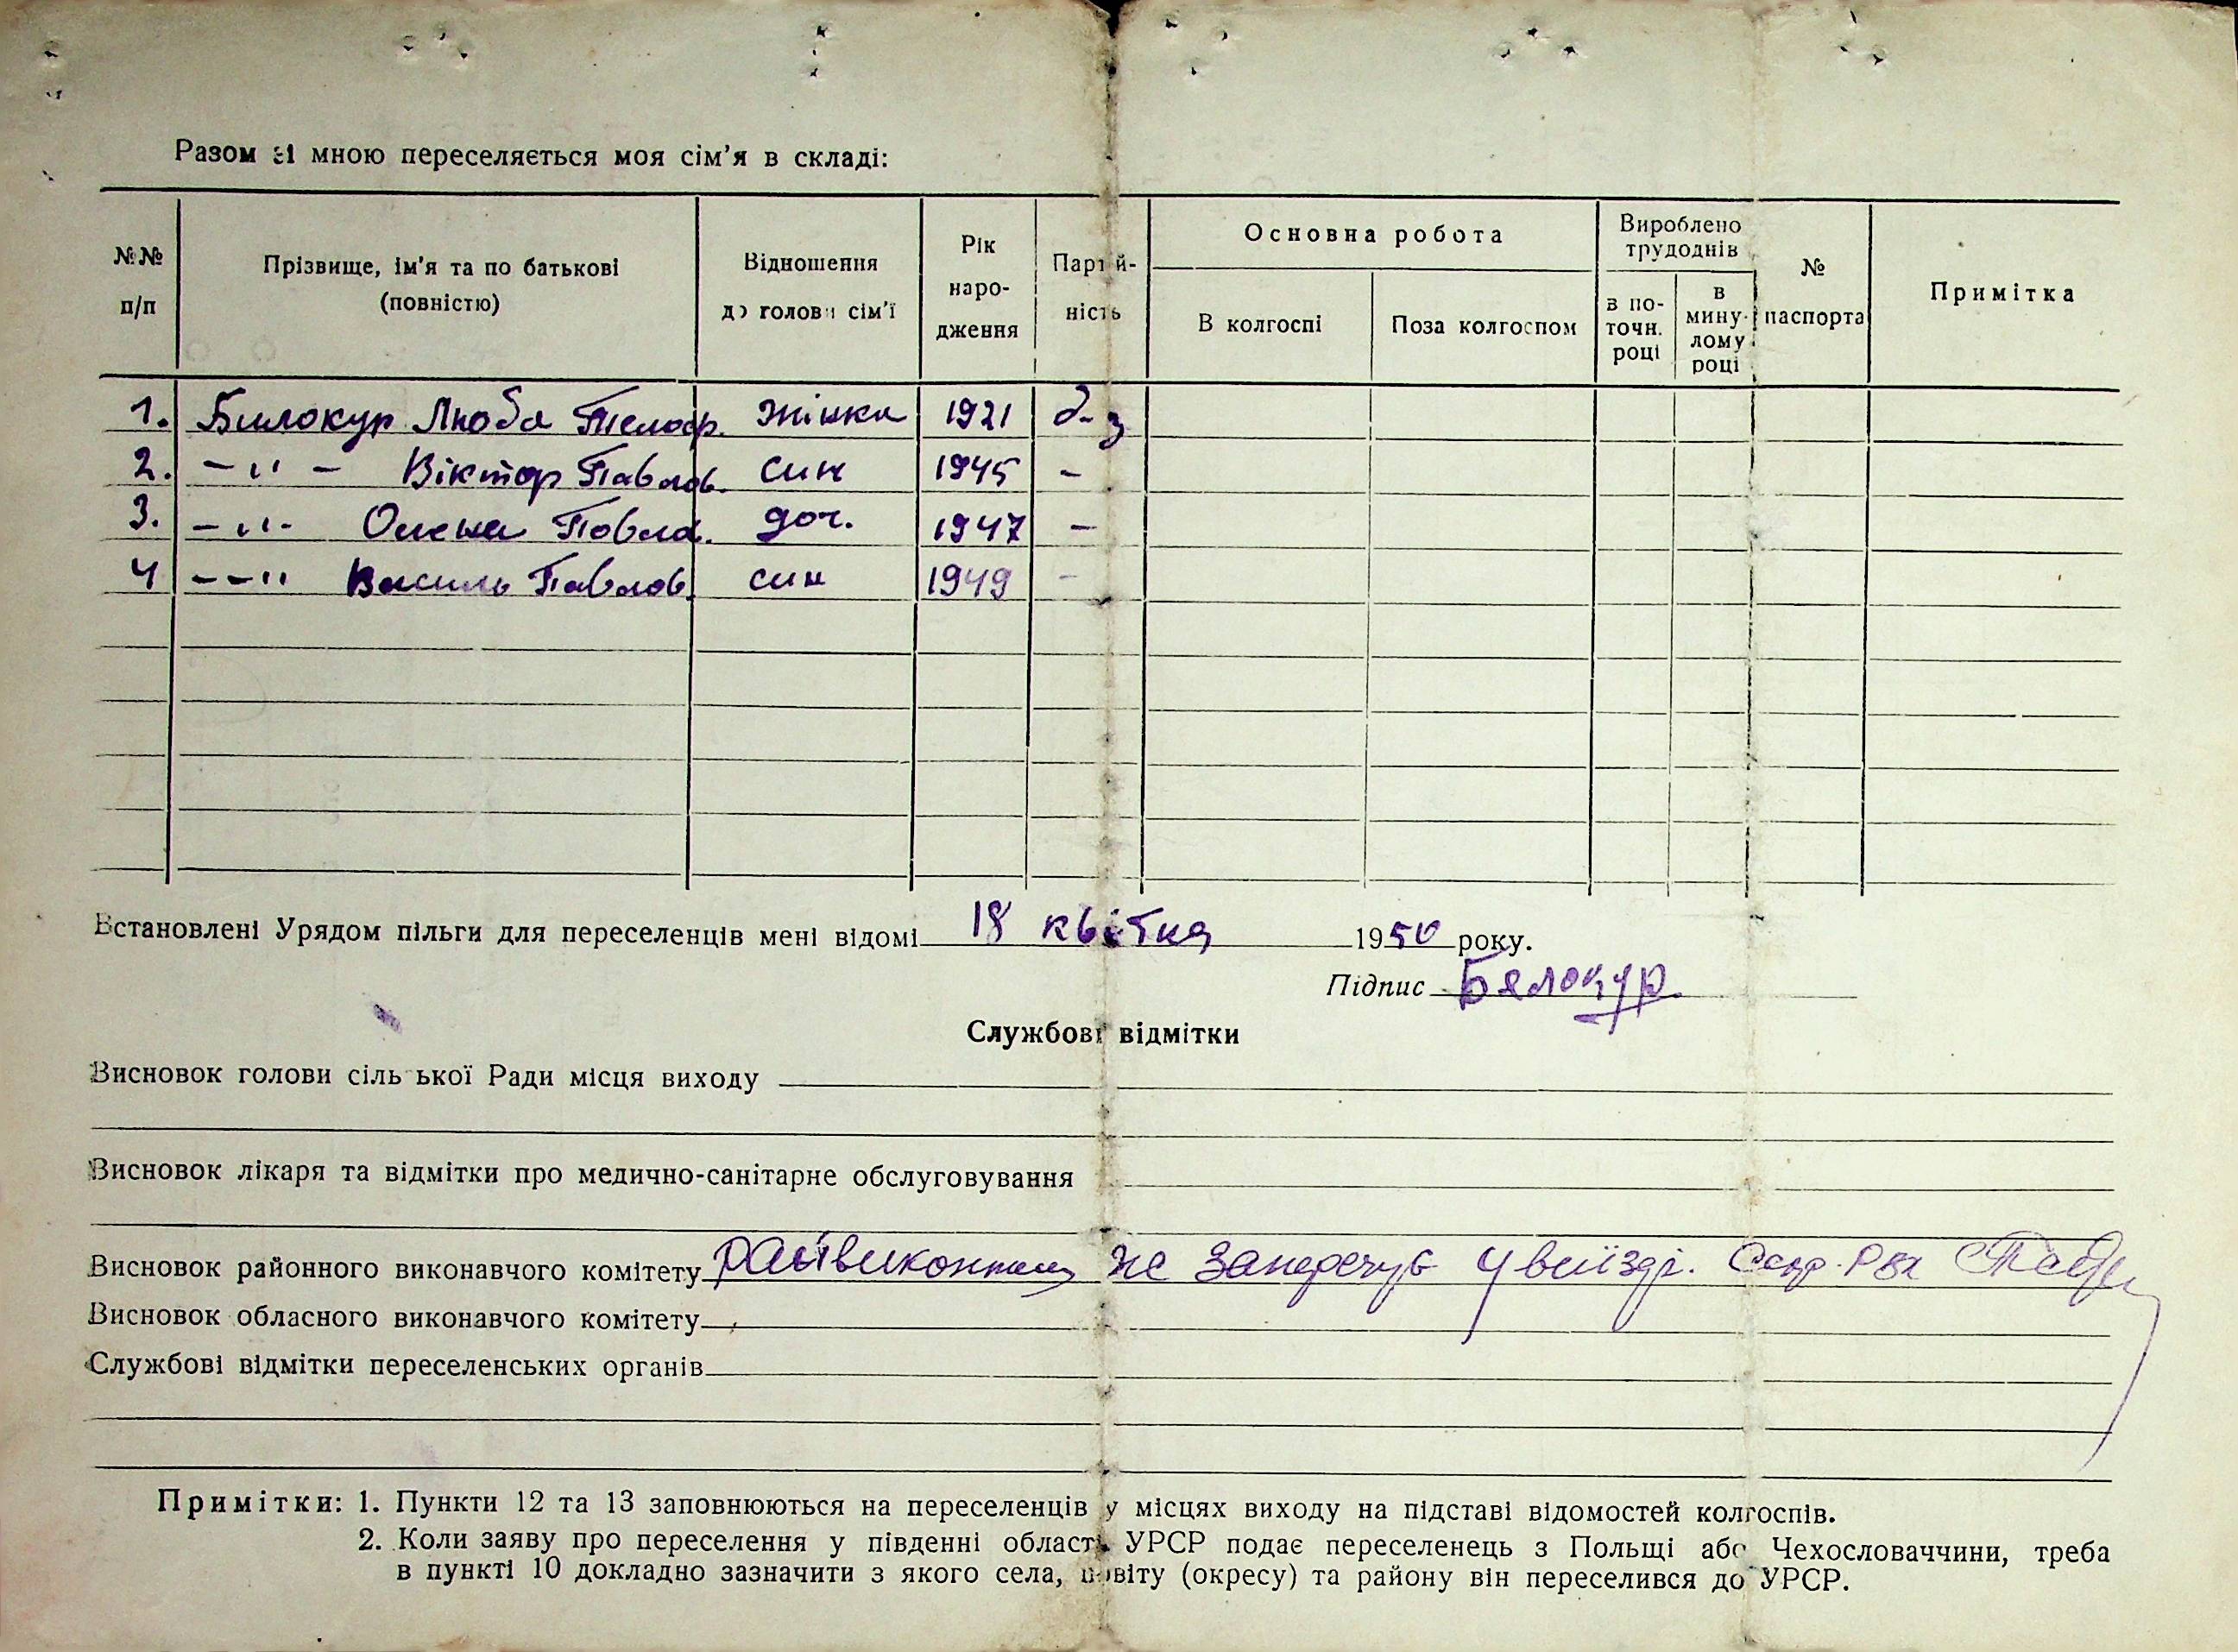 Разом зі мною переселяється моя сім’я в складі:
№№ п/п
Прізвище, ім’я та по батькові (повністю)
Відношення до голови сім’ї
Рік народження
Партійність
Основна робота
В колгоспі
Поза колгоспом
Вироблено трудоднів
в поточн. році
в минулому році
№ паспорта
Примітка
1. Билокур Люба жінка 1921 б-з
2. –"– Віктор Павлов. син 1945 –
3. –"– Олена Павлов. доч. 1947 –
4 ––" Василь Павлов. син 1949 –
Встановлені Урядом пільги для переселенців мені відомі 18 квітня 1950 року.
Підпис Белокур.
Службові відмітки
Висновок голови сільської Ради місця виходу
Висновок лікаря та відмітки про медично-санітарне обслуговування
Висновок районного виконавчого комітету райвиконком не заперечує у виїзді.
Висновок обласного виконавчого комітету
Службові відмітки переселенських органів
Примітки: 1. Пункти 12 та 13 заповнюються на переселенців у місцях виходу на підставі відомостей колгоспів.
2. Коли заяву про переселення у південні області УРСР подає переселенець з Польщі або Чехословаччини, треба
в пункті 10 докладно зазначити з якого села, повіту (окресу) та району він переселився до УРСР.